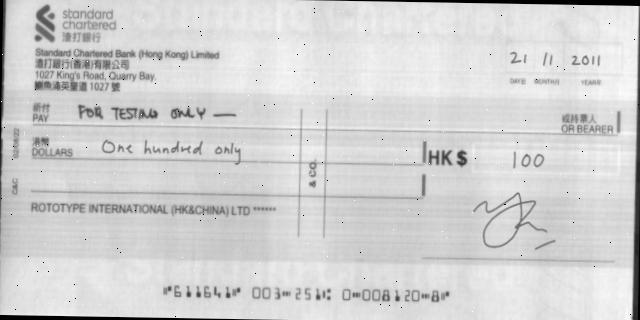 standard
chartered
渣打銀行
Standard Chartered Bank (Hong Kong) Limited
渣打銀行(香港)有限公司
1027 King's Road, Quarry Bay,
鰂魚涌英皇道 1027 號
21 /1 2011
DATE MONTH YEAR
祈付
PAY
FOR TESTING ONLY —
或持票人
OR BEARER
港幣
DOLLARS
One hundred only
HK $
100
& CO.
C&C
ROTOTYPE INTERNATIONAL (HK&CHINA) LTD ******
⑈611641⑈ 003⑉251⑆ 0⑉008120⑉8⑈